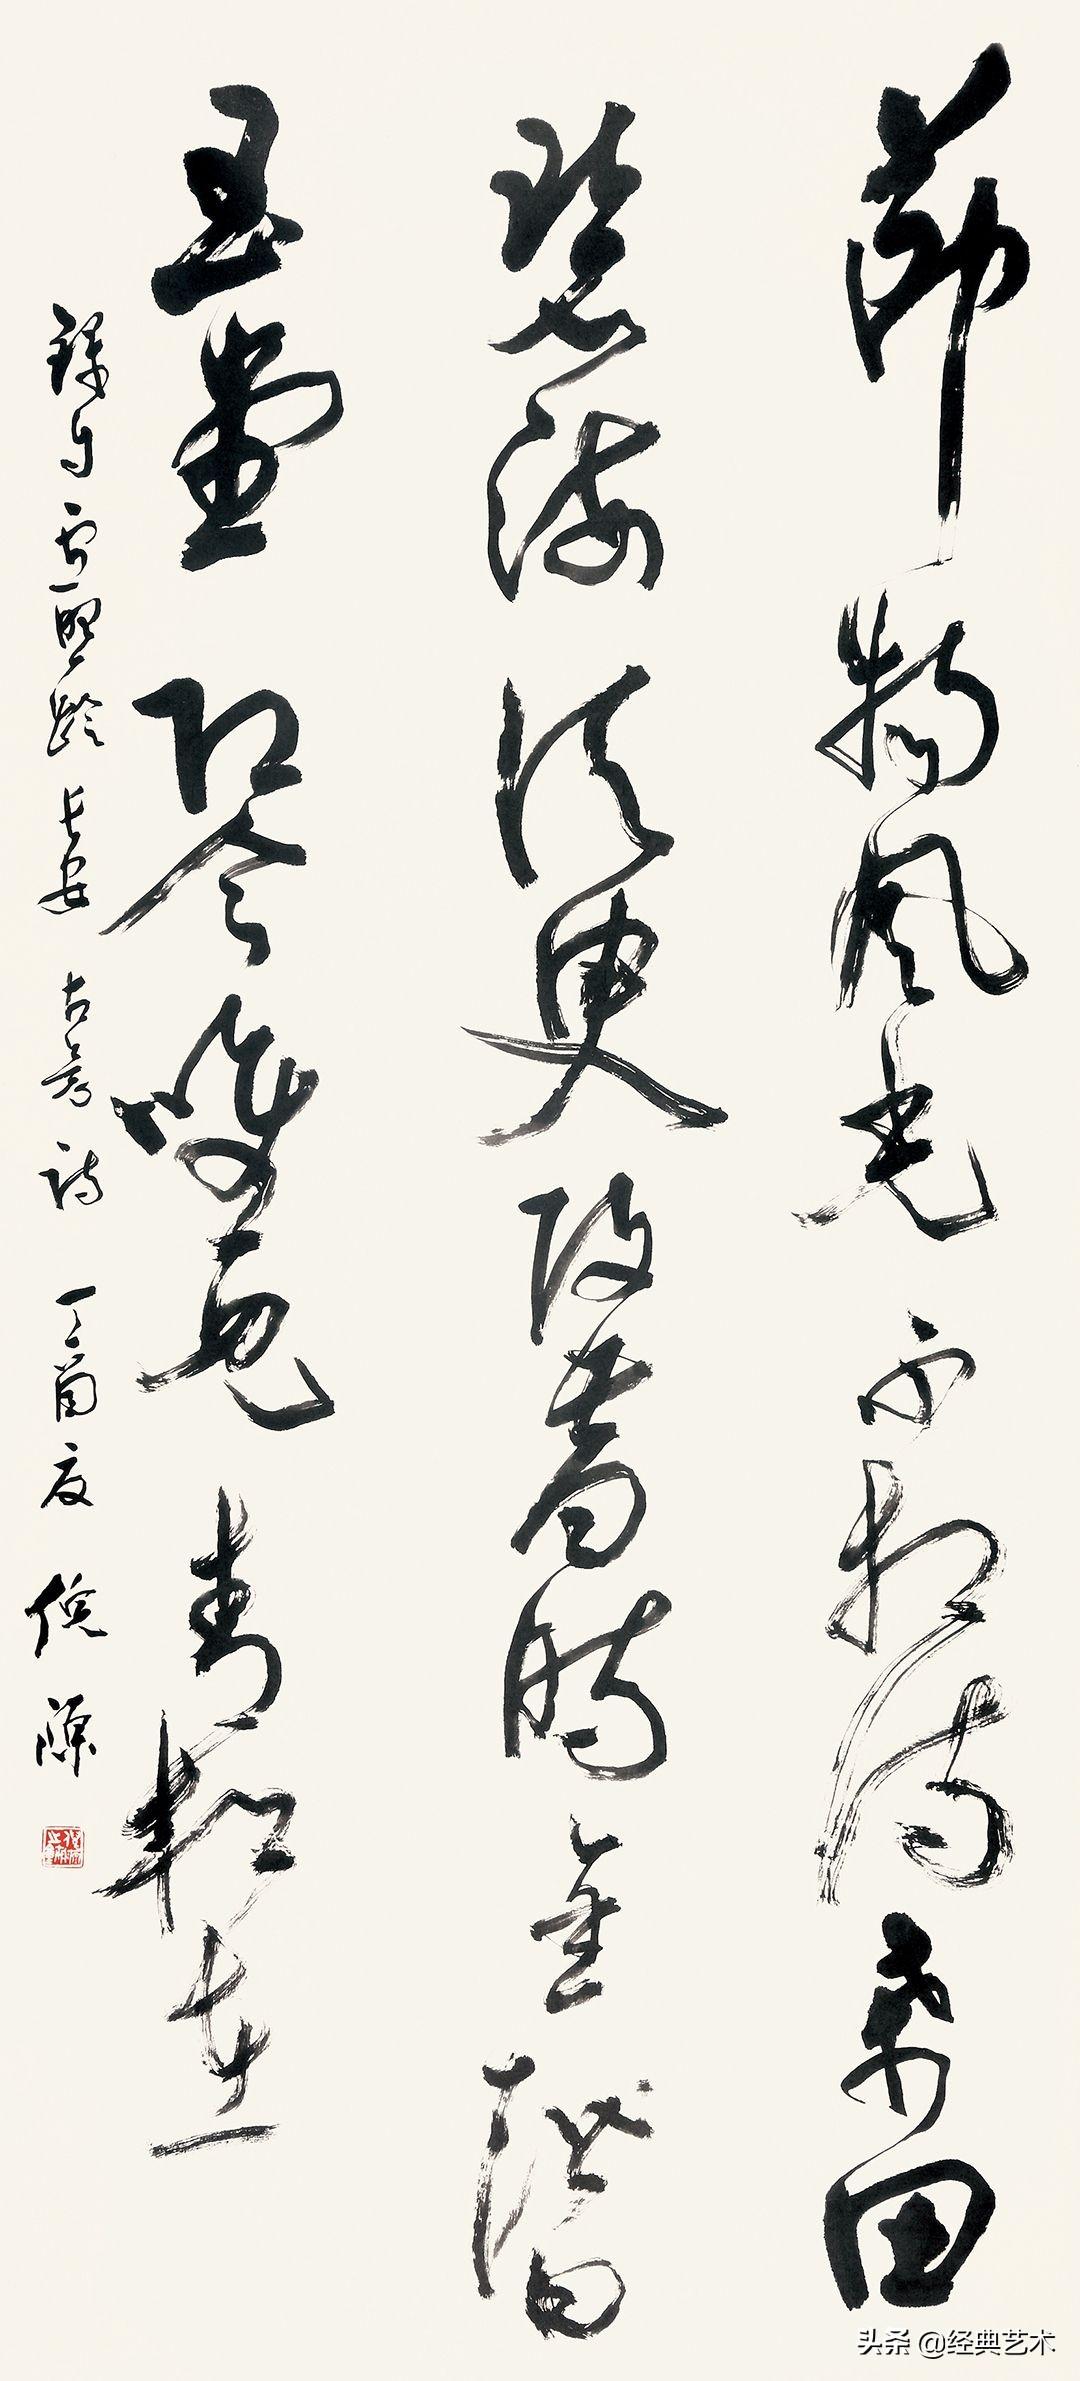 節物風光不相待桑田
碧海須臾改昔時金階白
玉堂即今唯見青松在
錄自盧照鄰長安古意詩 丁酉夏 倪
头条 @经典艺术